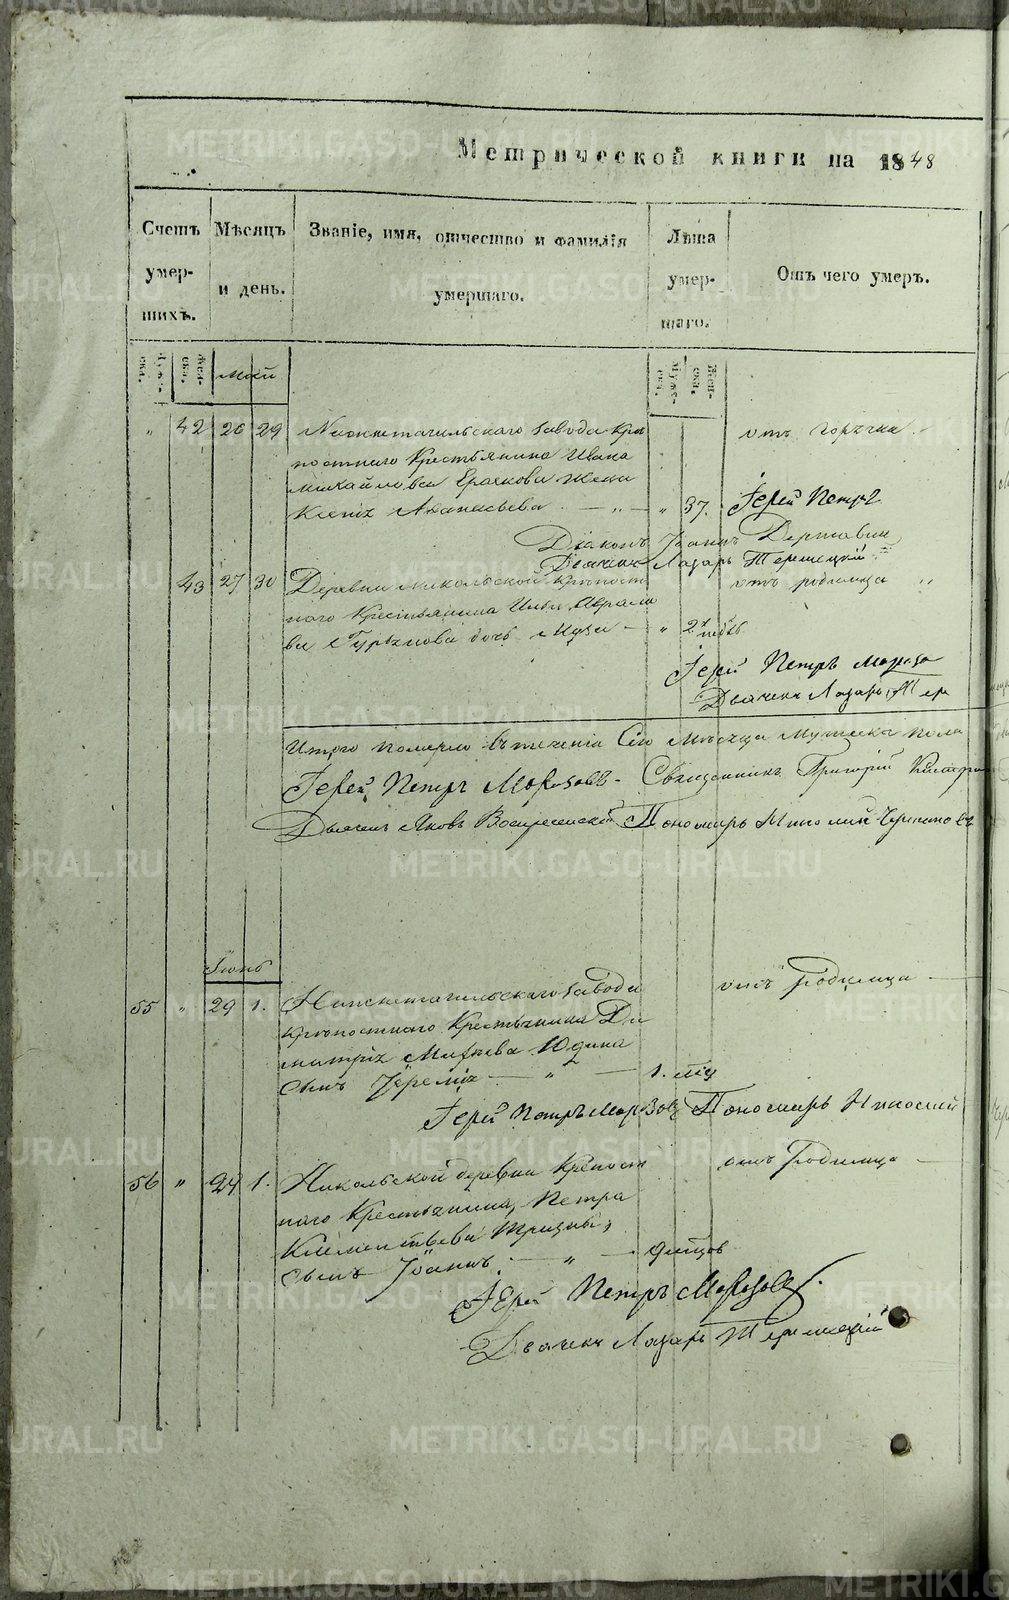 Метрической книги на 1848
Счетъ умершихъ.
Мѣсяцъ и день.
Званіе, имя, отчество и фамилія умершаго.
Лѣта умершаго.
Отъ чего умеръ.
Май
" 42 26 29 Нижнетагильскаго завода Крѣ
постнаго Крестьянина Ивана
Михайлова Ерачкова Жена
Ксенія Афанасьева — " — " 37.
отъ горячки
Іерей Петръ
Діаконъ Іоаннъ Державин
Дьячекъ Лазарь Теремецкій
43 27 30 Деревни Никольской крѣпост
наго Крестьянина Ильи Аврамо
ва дочь — " 2 недѣ
отъ родимца "
Іерей Петръ Морозо
Дьячекъ Лазарь Тере
Итого померло въ теченіи Сего Мѣсяца Мужеска пола
Іерей Петръ Морозовъ. Священникъ Григорій
Дьячекъ Яковъ Воскресенскій Пономарь Николай
Іюнь
55 " 29 1. Нижнетагильскаго завода
крѣпостнаго Крестьянина Ди
митрія Матвѣева Юдина
Сынъ Іеремія — " — 1. мѣц
отъ Родимца —
Іерей Петръ Морозовъ Пономарь Николай
56 " 29 1. Никольской деревни Крѣпост
наго Крестьянина, Петра
Климентьева
Сынъ Іоаннъ. — " —
отъ Родимца —
Іерей Петръ Морозовъ.
Дьячекъ Лазарь Теремецкій
METRIKI.GASO-URAL.RU